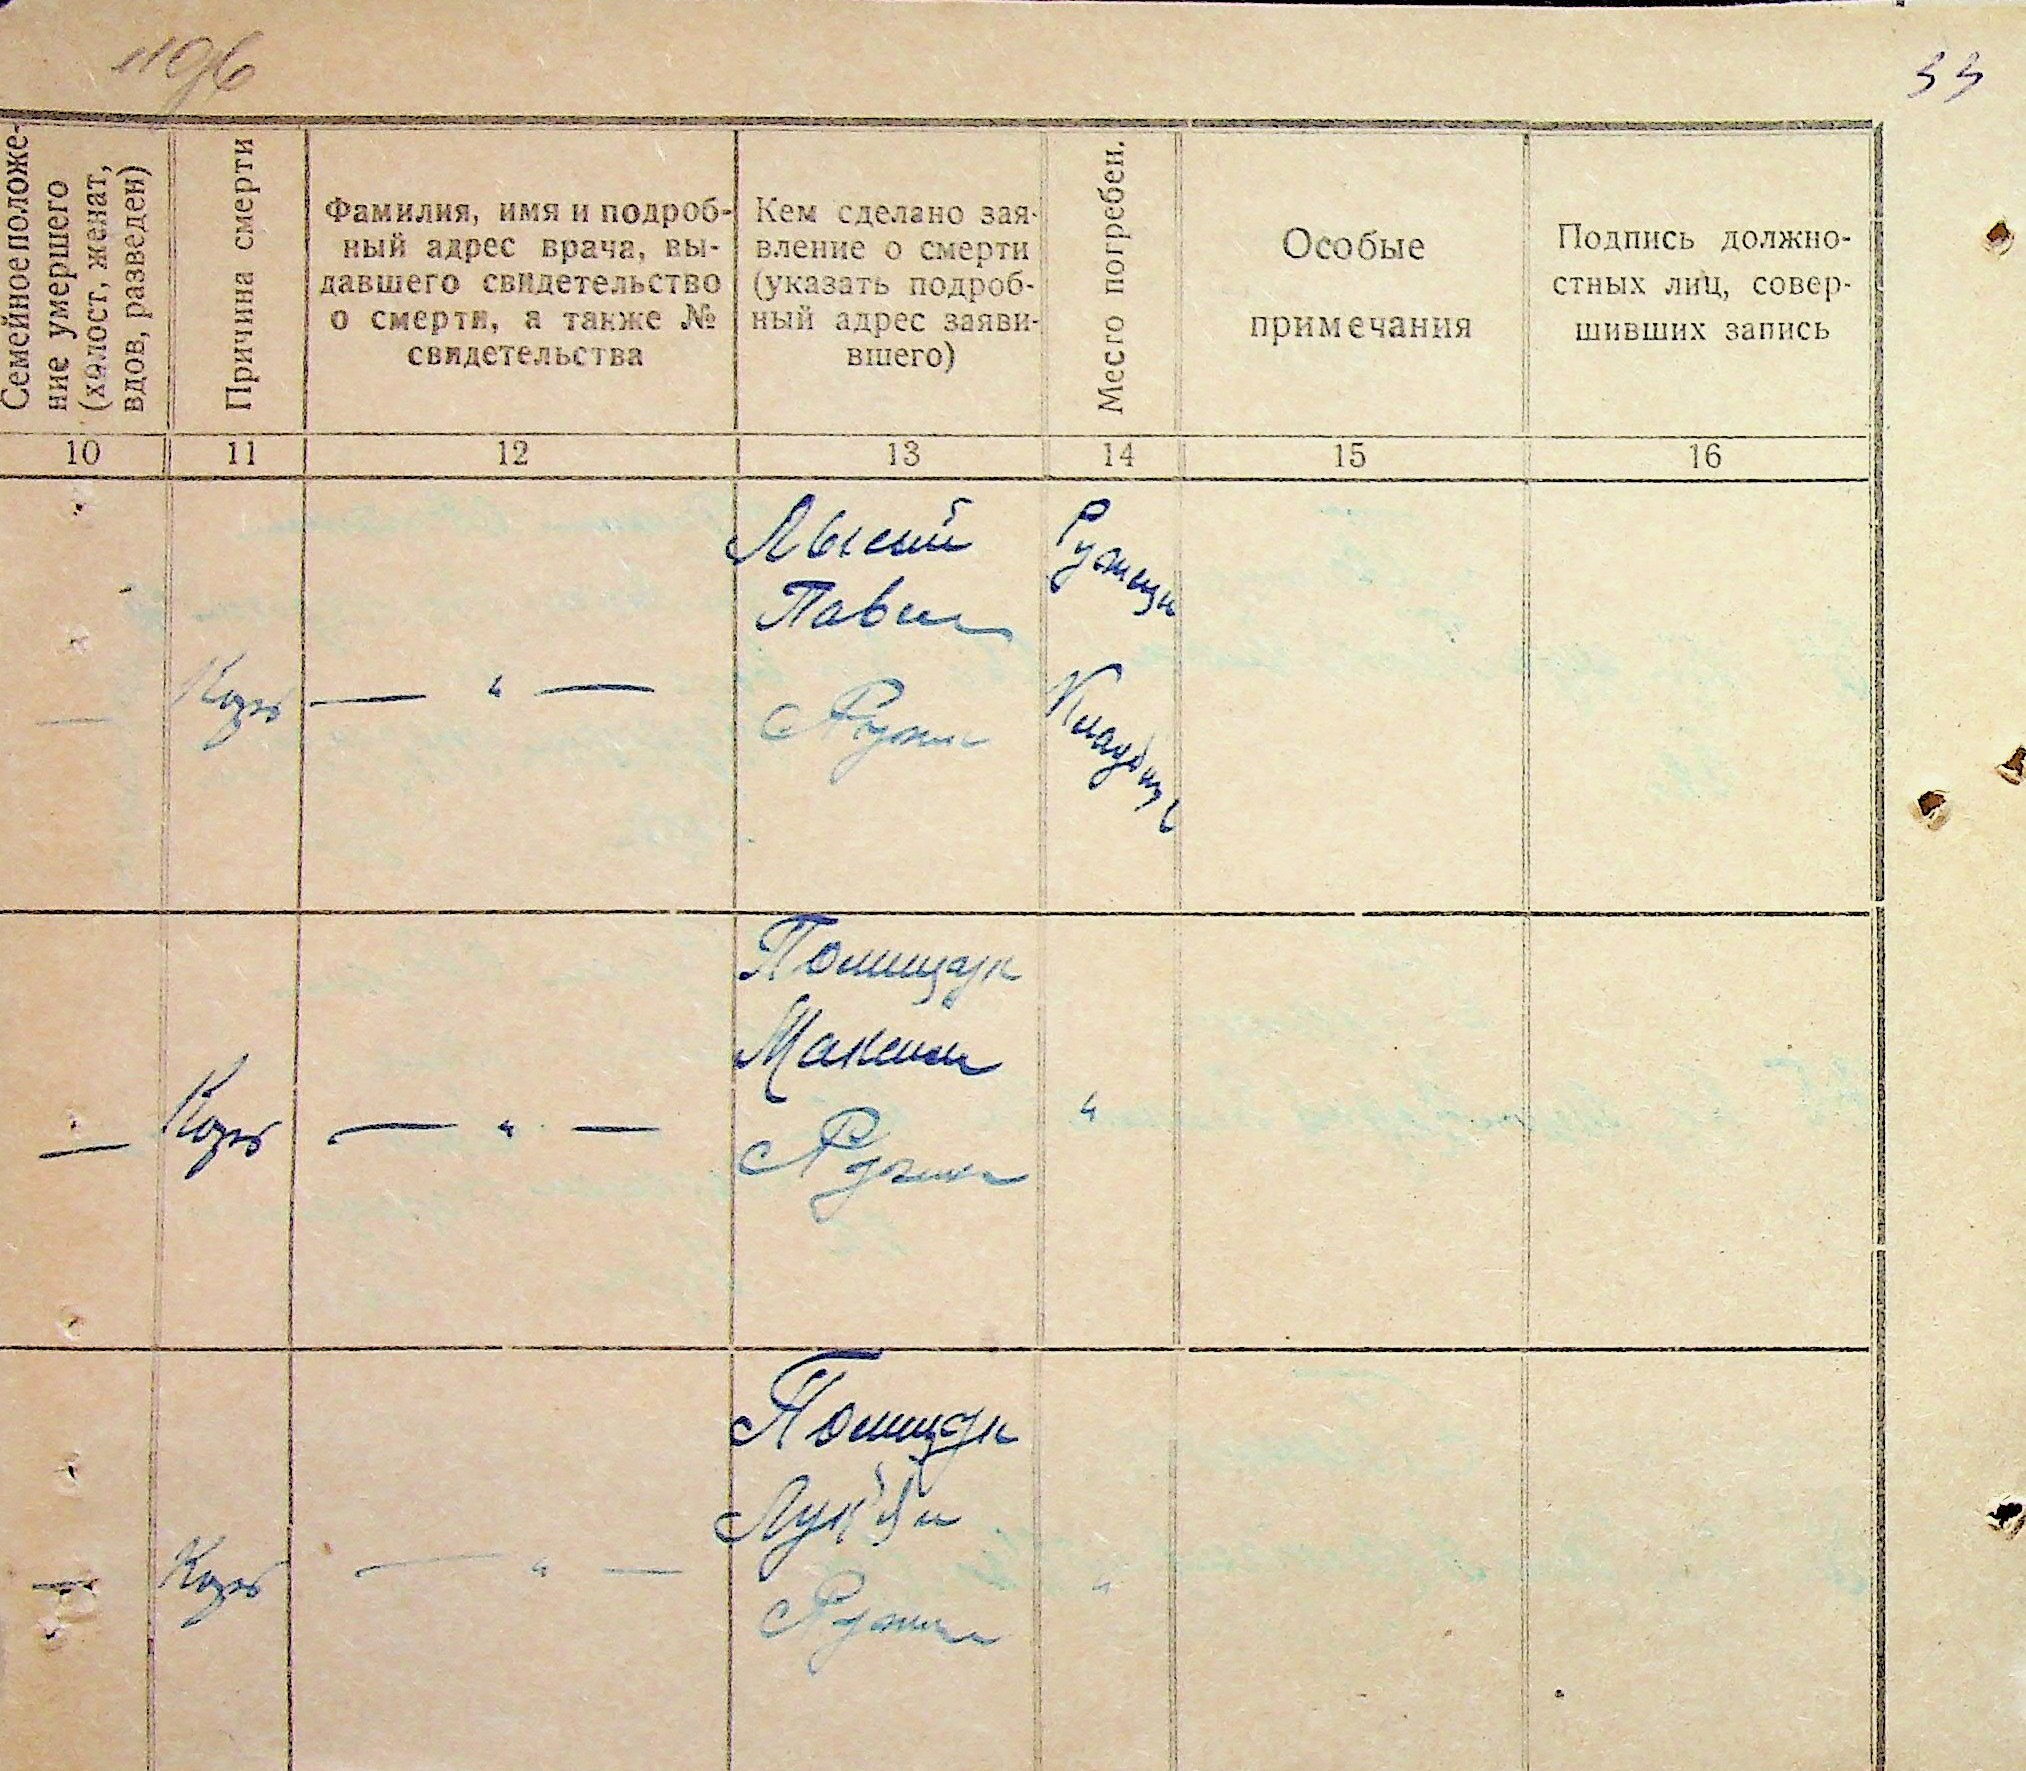 33
Семейное положе-
ние умершего
(холост, женат,
вдов, разведен)
Причина смерти
Фамилия, имя и подроб-
ный адрес врача, вы-
давшего свидетельство
о смерти, а также №
свидетельства
Кем сделано зая-
вление о смерти
(указать подроб-
ный адрес заяви-
вшего)
Место погребен.
Особые
примечания
Подпись должно-
стных лиц, совер-
шивших запись
10 11 12 13 14 15 16
Лысий
Павло
— Корь — " —
Полищук
Максим
— Корь — " — "
Полищук
— Корь — " — "